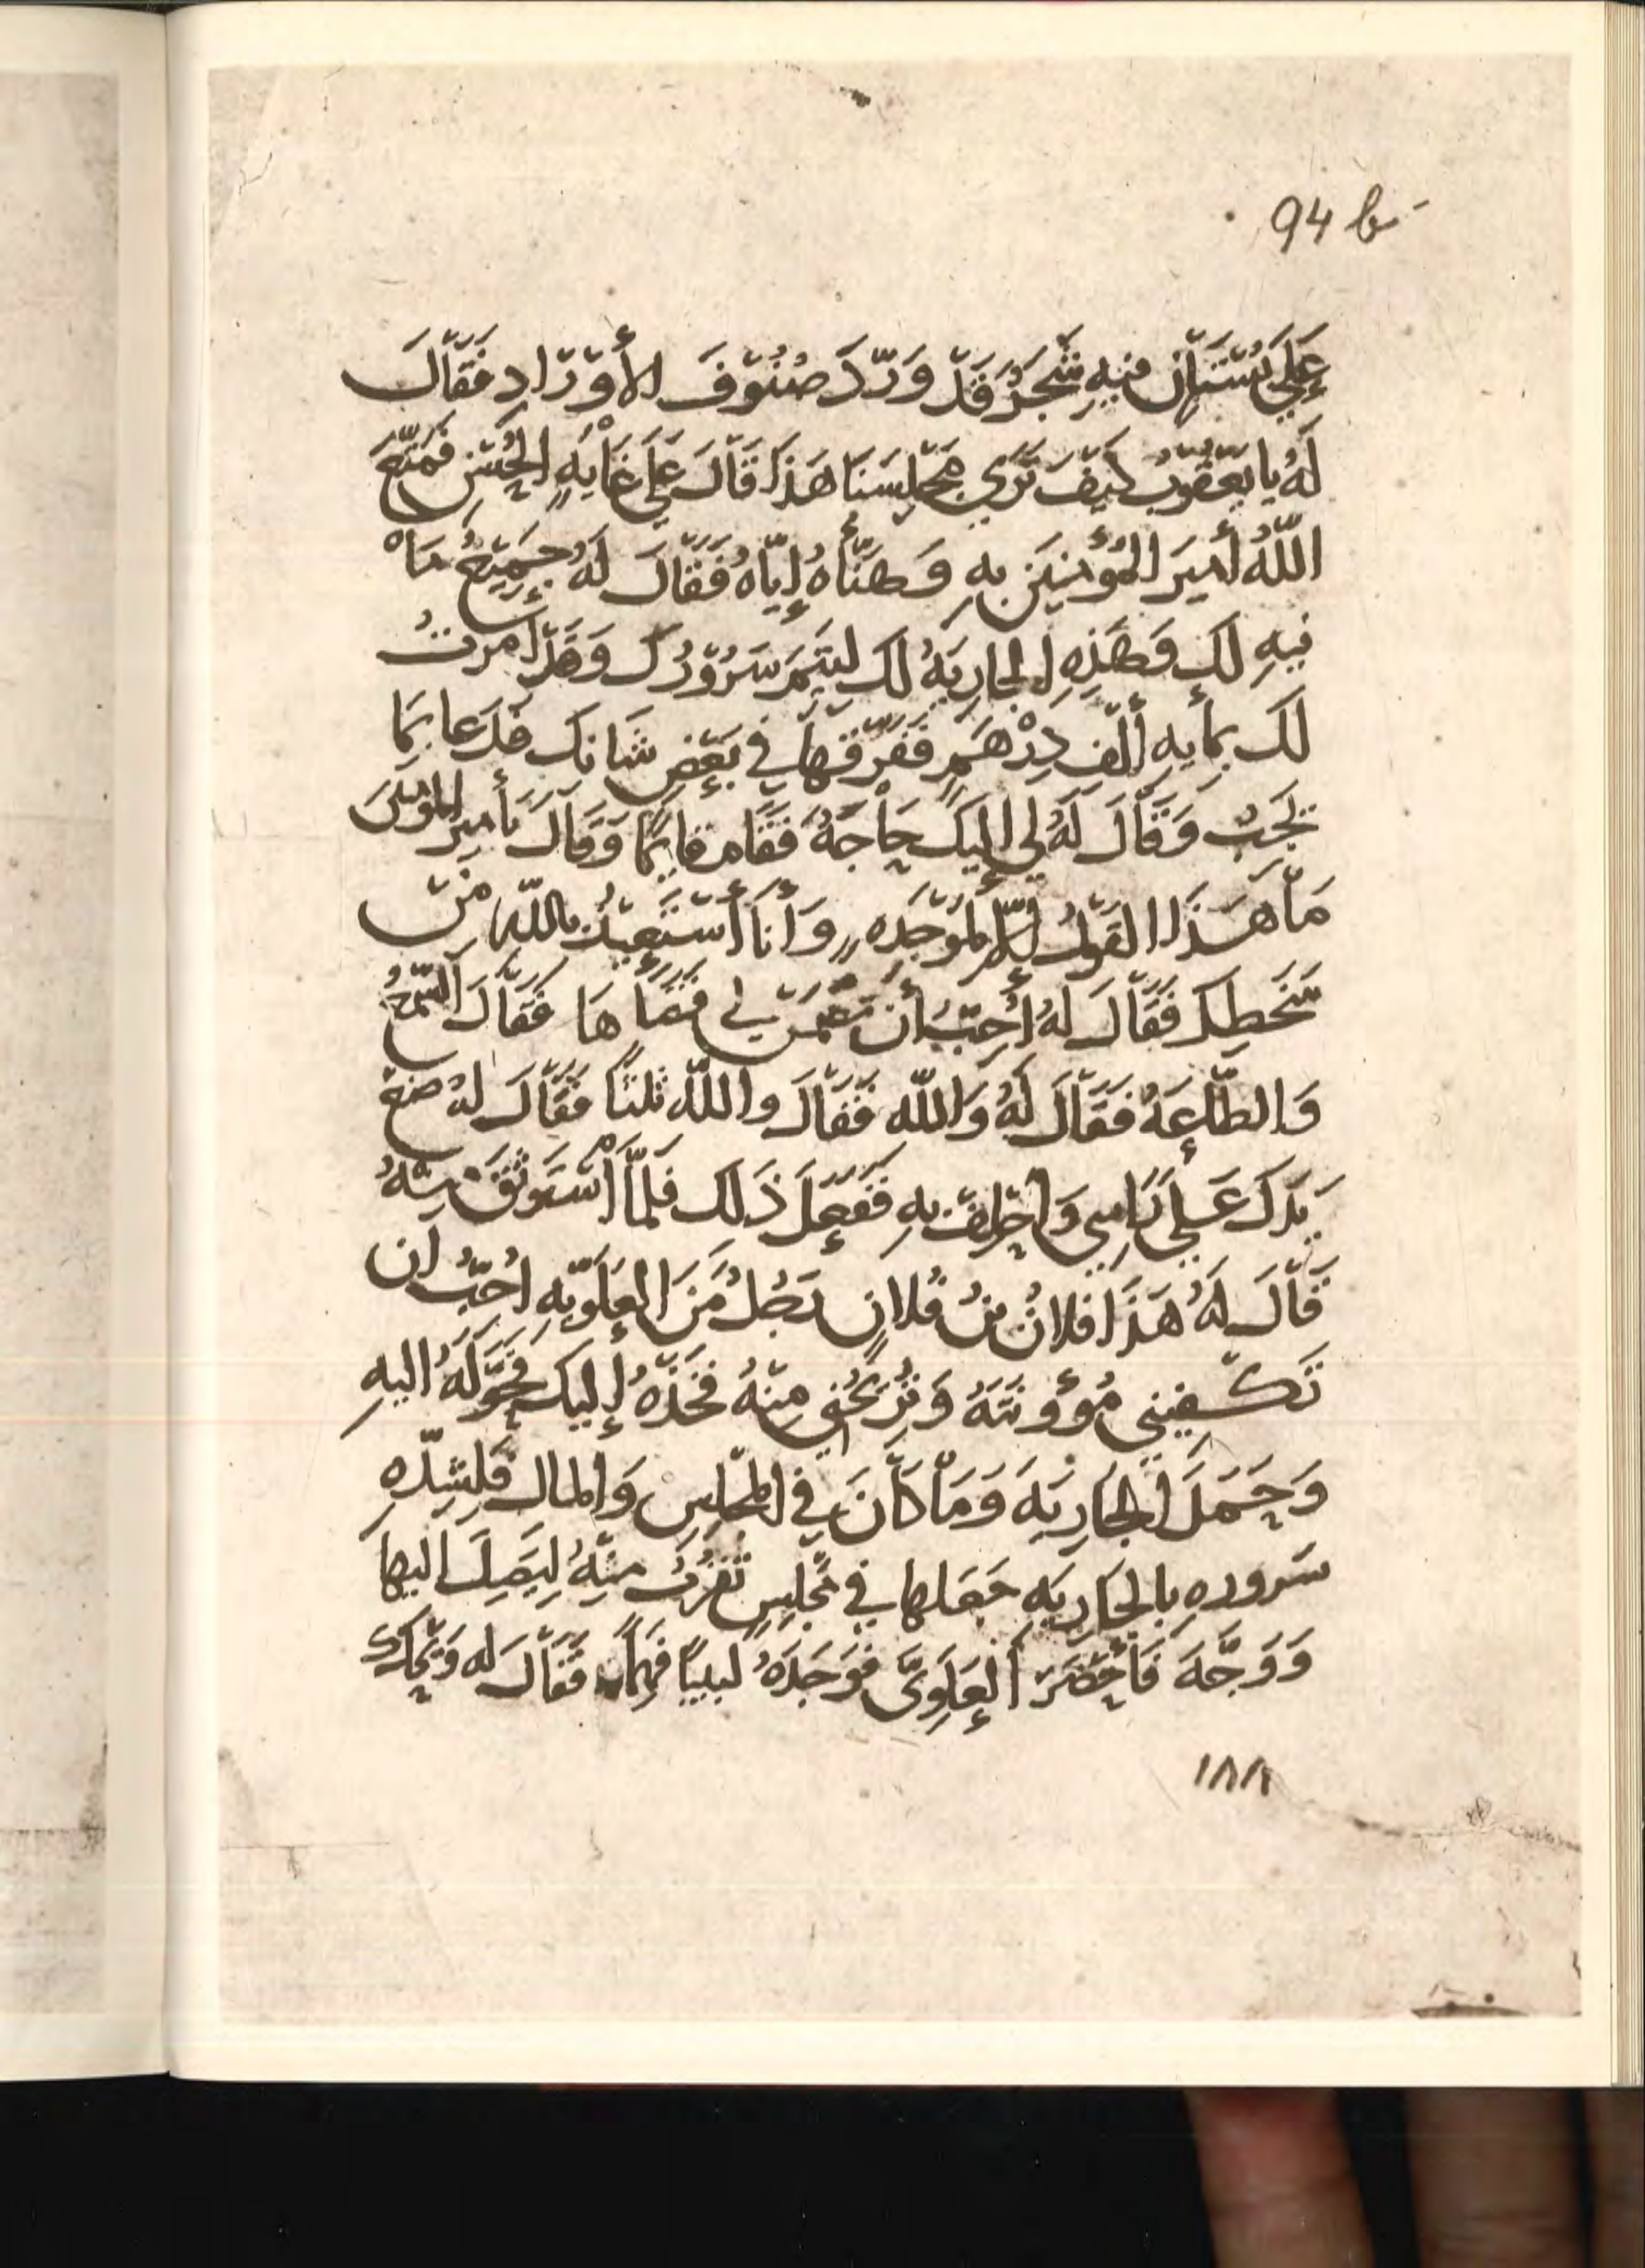 94 b
عَلَى بُسْتَانٍ فِيهِ شَجَرٌ قَدْ وَرَّدَ صُنُوْفَ الأَوْرَادِ فَقَالَ
لَهُ يا يَعْقُوْبُ كَيْفَ تَرَى مَجْلِسَنَا هَذَا قَالَ عَلَى غَايَةِ الحُسْنِ فَمَتَّعَ
اللّهُ أَمِيرَ المُؤْمِنِيَن بِهِ وَهَنَّأَهُ إِيَّاهُ فَقَالَ لَهُ جَمِيْعُ مَا
فِيهِ لَكَ وَهَذِهِ الجارِيَةُ لَكَ لِيَتِمَّ سُرُوْرُكَ وَقَدْ أَمَرتُ
لَكَ بِمايةِ أَلْفِ دِرْهَمٍ فَفَرِّقْهَا فِي بَعْضِ شَانِكَ فَدَعا بِمَا
يَجِبُ وَقَالَ لَهُ لِي إِلَيكَ حَاجَةٌ فَقَامَ قايِمًا وَقَالَ يَأَمِيرَ المُومنينَ
مَا هَذَا القَوْلُ إِلَّا لِمَوْجِدَه وَأَنَا أَسْتَعِيْذُ بِاللّهِ مِنْ
سَخَطِكَ فَقَالَ لَهُ أُحِبُّ أَنْ تَضْمَنَ لِي قَضَاهَا فَقَالَ السَّمْعُ
وَالطَّاعَةُ فَقَالَ لَهُ وَاللّهِ فَقَالَ واللّهِ ثلثًا فَقَالَ لَهُ ضَعْ
يَدَكَ عَلَى رَاسِي وَاحْلِفْ بِهِ فَفَعَلَ ذَلِكَ فَلَمَّا اسْتَوْثَقَ مِنْهُ
قَالَ لَهُ هَذَا فلانُ بنُ فُلانٍ رَجُلٌ مِنَ العَلَوِيّةِ أُحِبُّ أَن
تَكْفِيَنِي مُؤُونَتَهُ وَتُرِيْحَنِي مِنْهُ فَخُذْهُ إِلَيكَ فَحَوَّلَهُ اليهِ
وَحَمَلَ الجَارِيَةَ وَمَا كَانَ فِي المَجْلِسِ وَالمالَ فَلِشِدَّةِ
سُرورِهِ بِالجَارِيَةِ جَعَلها فِي مَجْلِسٍ تَقْرُبُ مِنْهُ لِيَصِلَ اليها
وَوَجَّهَ فَأَحْضَرَ العَلَوِيَّ فَوَجَدَهُ لَبِيبًا فَهِمًا فَقَالَ له وَيْحَكَ
١٨٨